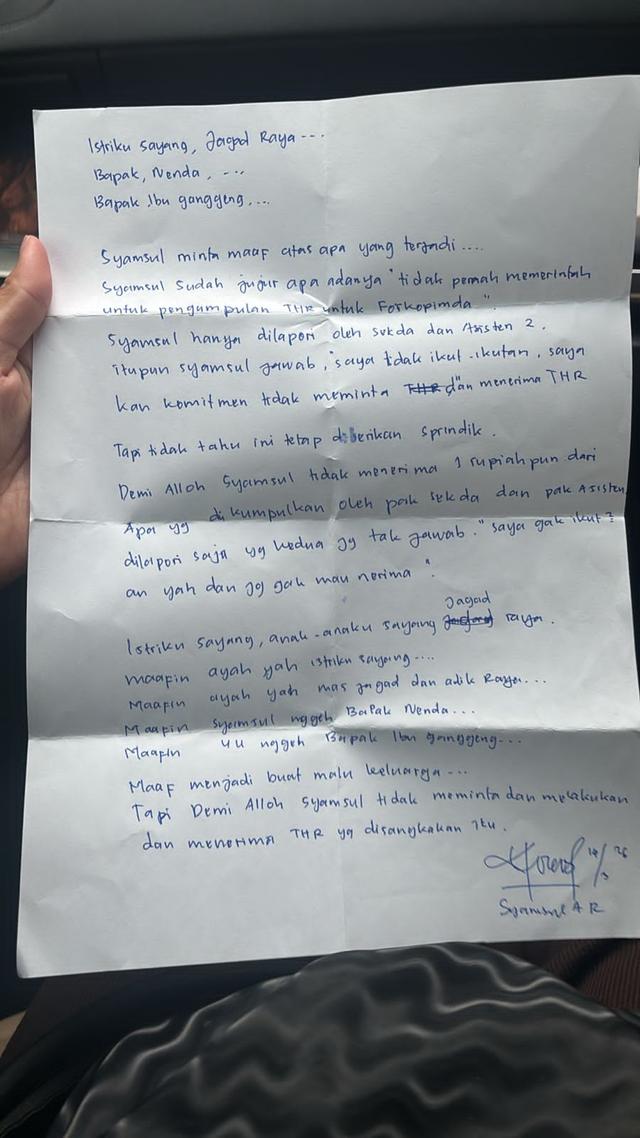 Istriku sayang, Jagad Raya ---
Bapak, Nenda, ---
Bapak Ibu ganggeng, ...
Syamsul minta maaf atas apa yang terjadi ....
Syamsul sudah jujur apa adanya "tidak pernah memerintah
untuk pengumpulan THR untuk Forkopimda".
Syamsul hanya dilapori oleh sekda dan Asisten 2.
itupun syamsul jawab, "saya tidak ikut-ikutan, saya
kan komitmen tidak meminta THR dan menerima THR"
Tapi tidak tahu ini tetap diberikan sprindik.
Demi Alloh Syamsul tidak menerima 1 rupiah pun dari
Apa yg dikumpulkan oleh pak sekda dan pak Asisten
dilapori saja yg kedua jg tak jawab. "saya gak ikut2
an yah dan jg gak mau nerima".
Istriku sayang, anak-anaku sayang Jagad raya.
maafin ayah yah istriku sayang....
Maafin ayah yah mas jagad dan adik Raya...
Maafin Syamsul nggeh Bapak Nenda...
Maafin nggeh Bapak Ibu ganggeng...
Maaf menjadi buat malu keluarga ---
Tapi Demi Alloh Syamsul tidak meminta dan melakukan
dan menerima THR yg disangkakan itu.
Syamsul A R